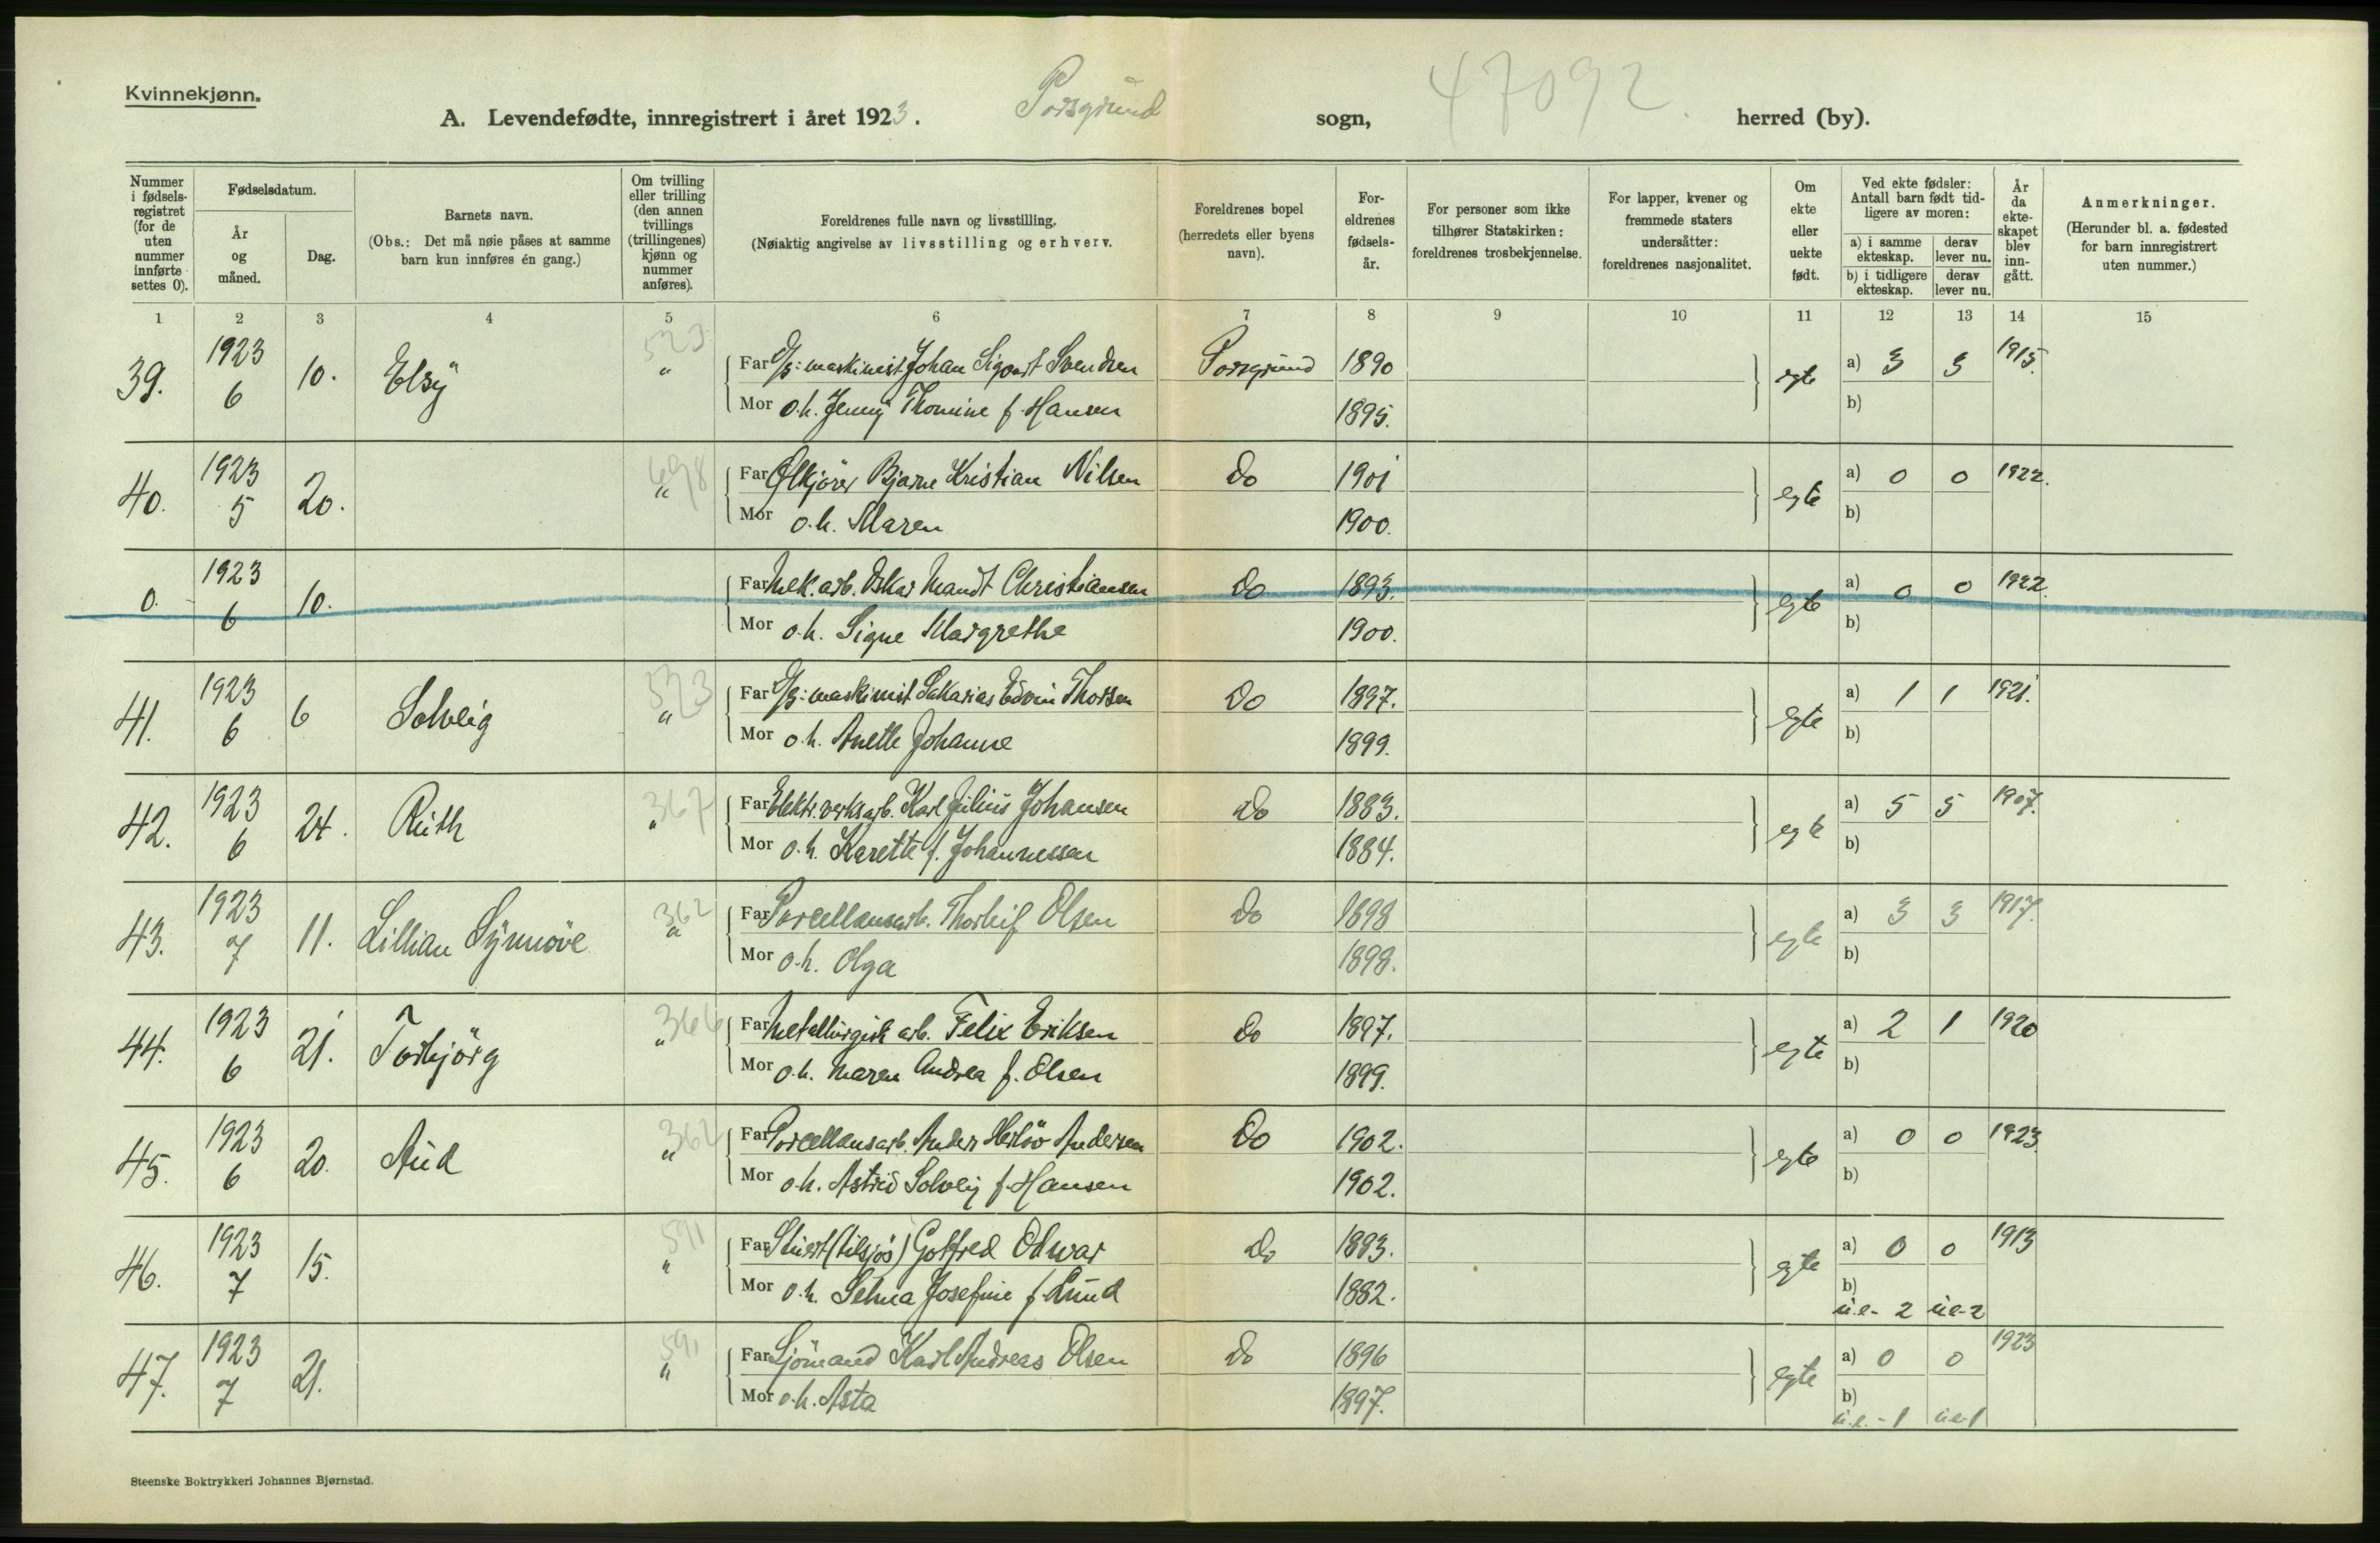 Kvinnekjønn.
A. Levendefødte, innregistrert i året 1923. Porsgrund sogn, 47092 herred (by).
Nummer i fødselsregistret (for de uten nummer innførte settes 0).
Fødselsdatum.
År og måned.
Dag.
Barnets navn.
(Obs.: Det må nøie påses at samme barn kun innføres én gang.)
Om tvilling eller trilling (den annen tvillings (trillingenes) kjønn og nummer anføres).
Foreldrenes fulle navn og livsstilling.
(Nøiaktig angivelse av livsstilling og erhverv.
Foreldrenes bopel (herredets eller byens navn).
Foreldrenes fødselsår.
For personer som ikke tilhører Statskirken: foreldrenes trosbekjennelse.
For lapper, kvener og fremmede staters undersåtter: foreldrenes nasjonalitet.
Om ekte eller uekte født.
Ved ekte fødsler: Antall barn født tidligere av moren:
a) i samme ekteskap. derav lever nu.
b) i tidligere ekteskap. derav lever nu.
År da ekteskapet blev inngått.
Anmerkninger.
(Herunder bl. a. fødested for barn innregistrert uten nummer.)
1 2 3 4 5 6 7 8 9 10 11 12 13 14 15
39. 1923 6 10. Elsÿ 523 " Far D/s: maskinist Johan Sigvart Svendsen Porsgrund 1890 egte a) 3 3 1915.
Mor o.h. Jenny Thomine f. Hansen 1895. b)
40. 1923 5 20. 698 " Far Ølkjører Bjarne Kristian Nilsen Do 1901 egte a) 0 0 1922.
Mor o.h. Maren 1900. b)
0. 1923 6 10. Far Mek. arb. Oskar Mandt Christiansen Do 1893. egte a) 0 0 1922.
Mor o.h. Signe Margrethe 1900. b)
41. 1923 6 6 Solveig 523 " Far D/s: maskinist Sakarias Edvin Thorsen Do 1897. egte a) 1 1 1921.
Mor o.h. Anette Johanne 1899. b)
42. 1923 6 24. Ruth 367 " Far Elektr. verksarb. Karl Julius Johansen Do 1883. egte a) 5 5 1907.
Mor o.h. Karette f. Johannessen 1884. b)
43. 1923 7 11. Lillian Synnöve 362 " Far Porcellansarb. Thorleif Olsen Do 1898 egte a) 3 3 1917.
Mor o.h. Olga 1898. b)
44. 1923 6 21. Torbjörg 366 " Far Metallurgisk arb. Felix Eriksen Do 1897. egte a) 2 1 1920
Mor o.h. Maren Andrea f. Olsen 1899. b)
45. 1923 6 20. Aud 362 " Far Porcellansarb. Anders Andersen Do 1902. egte a) 0 0 1923.
Mor o.h. Astrid Solveig f. Hansen 1902. b)
46. 1923 7 15. 591 " Far Stuert (tilsjös) Gotfred Odvar Do 1883. egte a) 0 0 1913
Mor o.h. Selma Josefine f. Lund 1882. b)
u.e- 2 u.e-2
47. 1923 7 21. 591 " Far Sjömand Karl Andreas Olsen Do 1896 egte a) 0 0 1923
Mor o.h. Asta 1897. b)
u.e. - 1 ue-1
Steenske Boktrykkeri Johannes Bjørnstad.